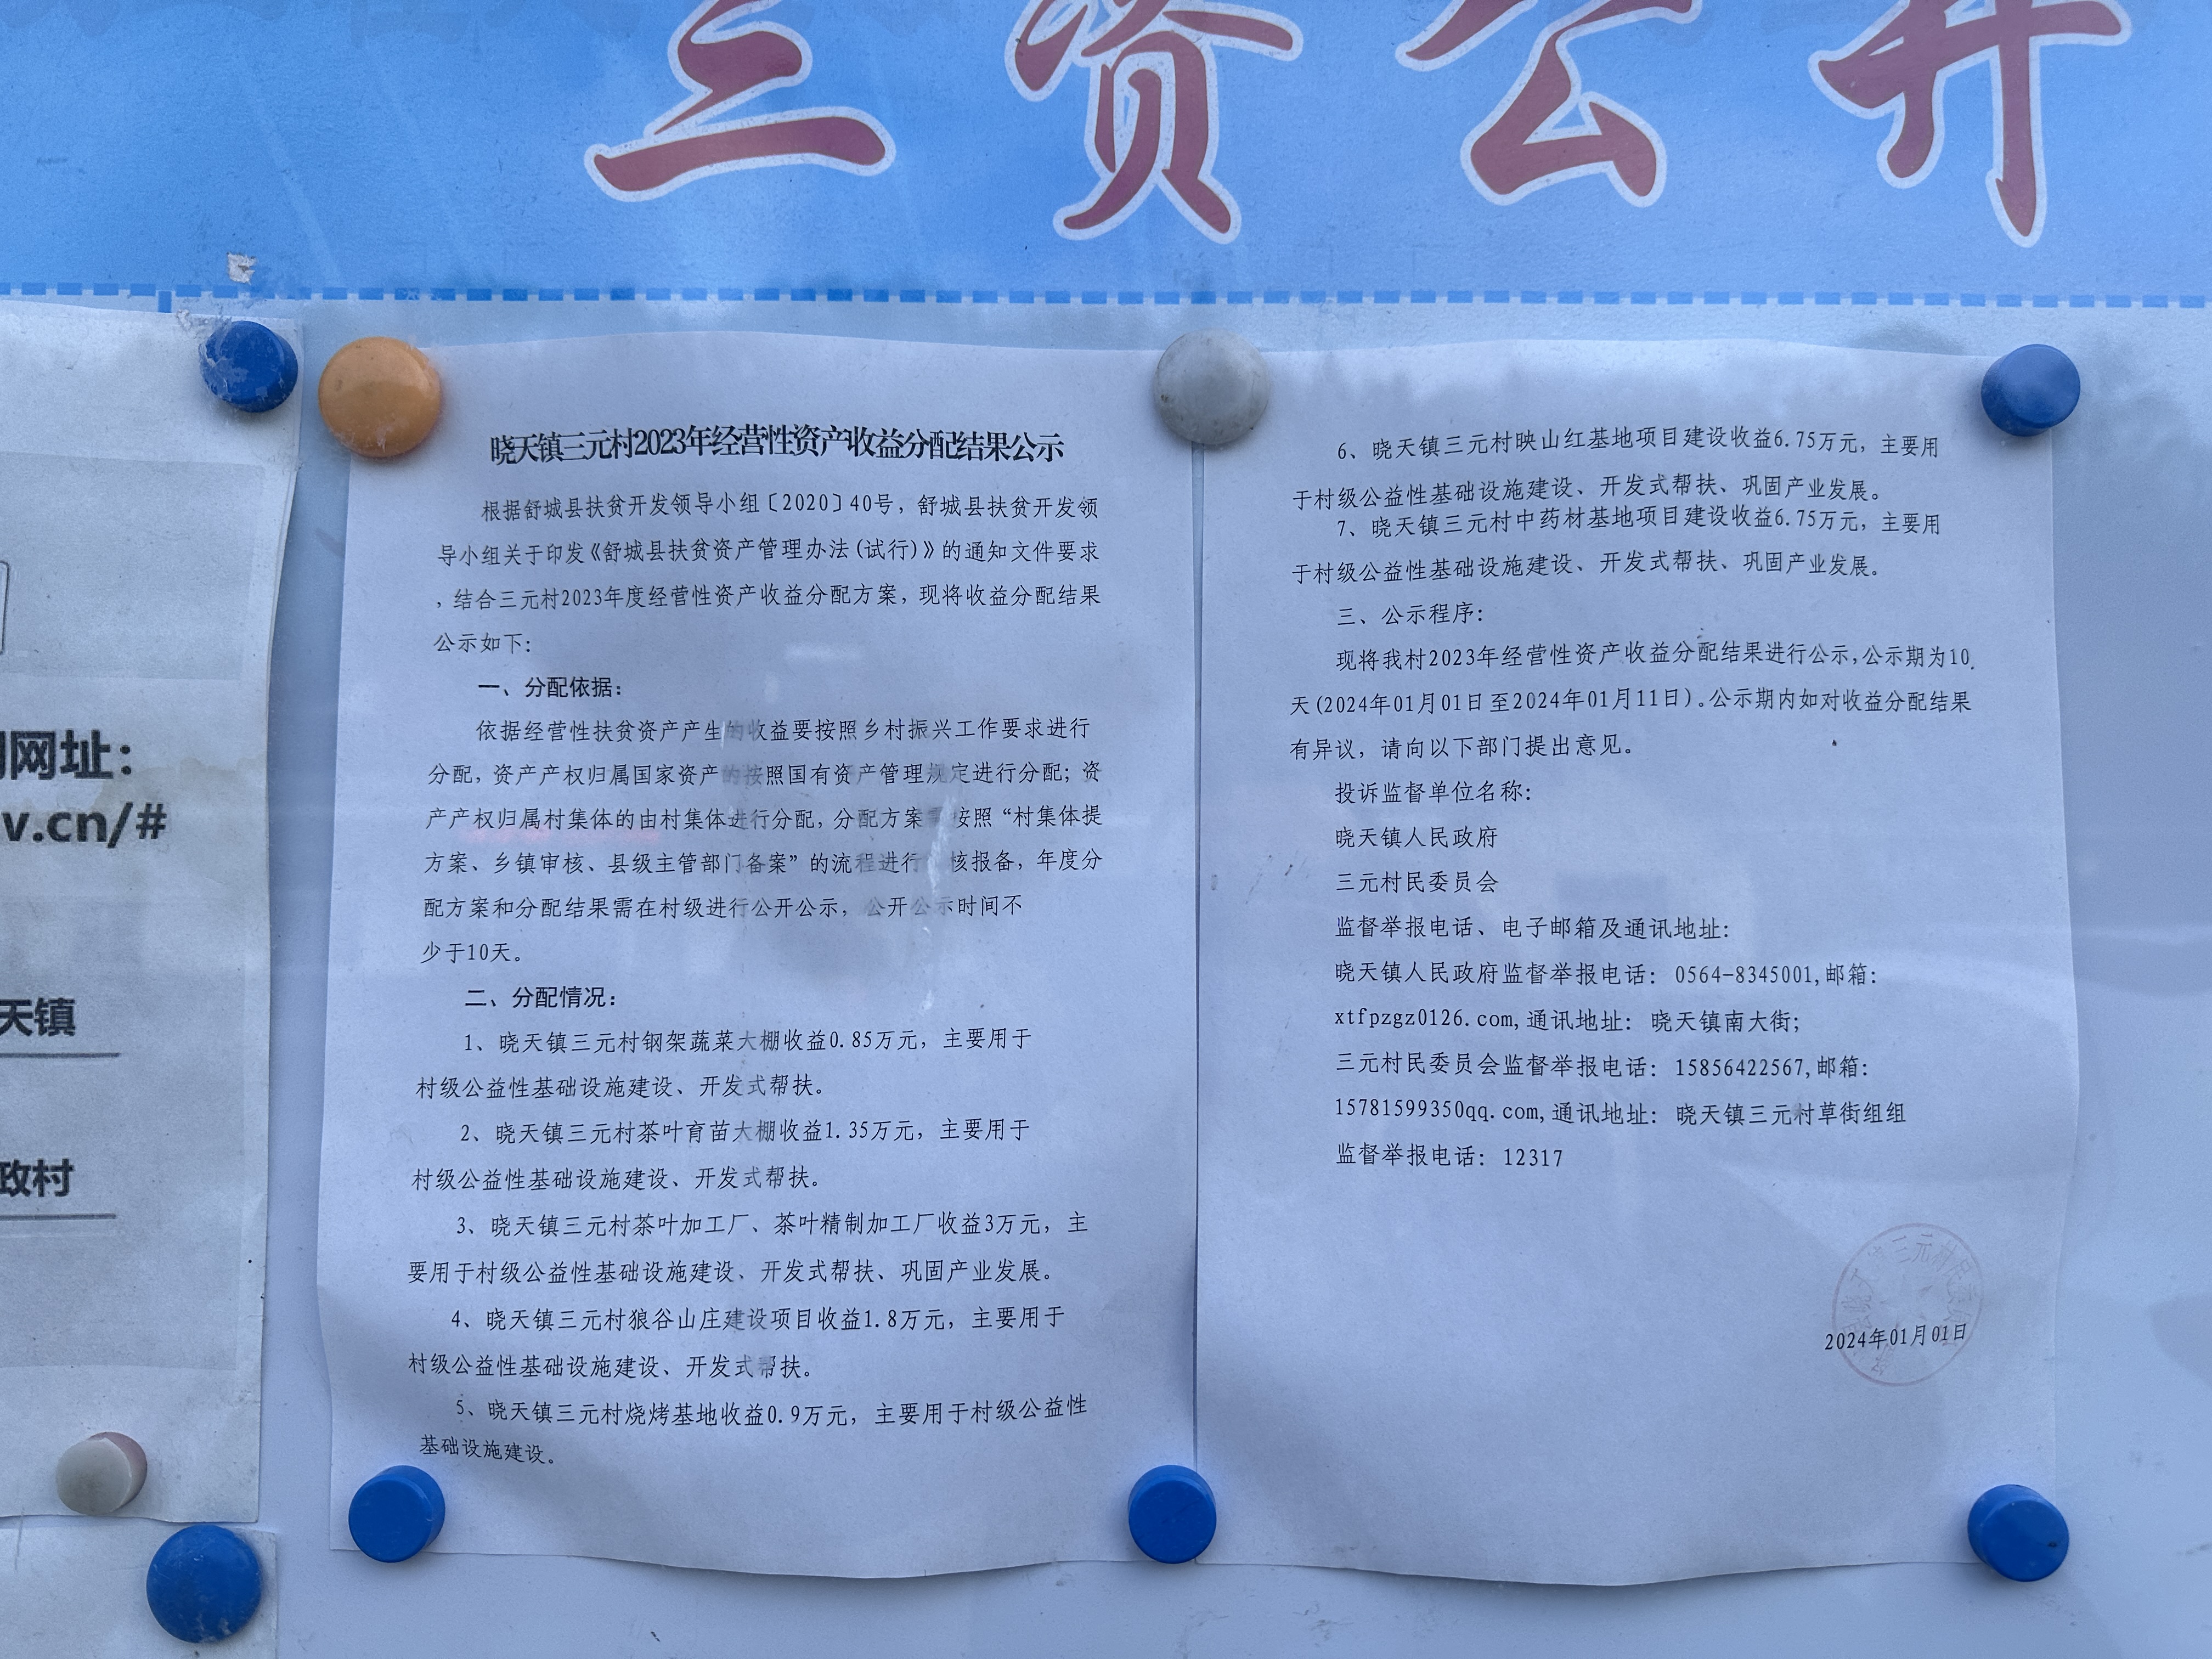 三资公开
网址：
v.cn/#
天镇
政村
晓天镇三元村2023年经营性资产收益分配结果公示
根据舒城县扶贫开发领导小组〔2020〕40号，舒城县扶贫开发领
导小组关于印发《舒城县扶贫资产管理办法(试行)》的通知文件要求
，结合三元村2023年度经营性资产收益分配方案，现将收益分配结果
公示如下：
一、分配依据：
依据经营性扶贫资产产生的收益要按照乡村振兴工作要求进行
分配，资产产权归属国家资产的按照国有资产管理规定进行分配；资
产产权归属村集体的由村集体进行分配，分配方案 按照“村集体提
方案、乡镇审核、县级主管部门备案”的流程进行 核报备，年度分
配方案和分配结果需在村级进行公开公示，公开公示时间不
少于10天。
二、分配情况：
1、晓天镇三元村钢架蔬菜大棚收益0.85万元，主要用于
村级公益性基础设施建设、开发式帮扶。
2、晓天镇三元村茶叶育苗大棚收益1.35万元，主要用于
村级公益性基础设施建设、开发式帮扶。
3、晓天镇三元村茶叶加工厂、茶叶精制加工厂收益3万元，主
要用于村级公益性基础设施建设、开发式帮扶、巩固产业发展。
4、晓天镇三元村狼谷山庄建设项目收益1.8万元，主要用于
村级公益性基础设施建设、开发式帮扶。
5、晓天镇三元村烧烤基地收益0.9万元，主要用于村级公益性
基础设施建设。
6、晓天镇三元村映山红基地项目建设收益6.75万元，主要用
于村级公益性基础设施建设、开发式帮扶、巩固产业发展。
7、晓天镇三元村中药材基地项目建设收益6.75万元，主要用
于村级公益性基础设施建设、开发式帮扶、巩固产业发展。
三、公示程序：
现将我村2023年经营性资产收益分配结果进行公示,公示期为10
天(2024年01月01日至2024年01月11日)。公示期内如对收益分配结果
有异议，请向以下部门提出意见。
投诉监督单位名称：
晓天镇人民政府
三元村民委员会
监督举报电话、电子邮箱及通讯地址：
晓天镇人民政府监督举报电话：0564-8345001,邮箱：
xtfpzgz0126.com,通讯地址：晓天镇南大街；
三元村民委员会监督举报电话：15856422567,邮箱：
15781599350qq.com,通讯地址：晓天镇三元村草街组组
监督举报电话：12317
三元村民委员会
2024年01月01日